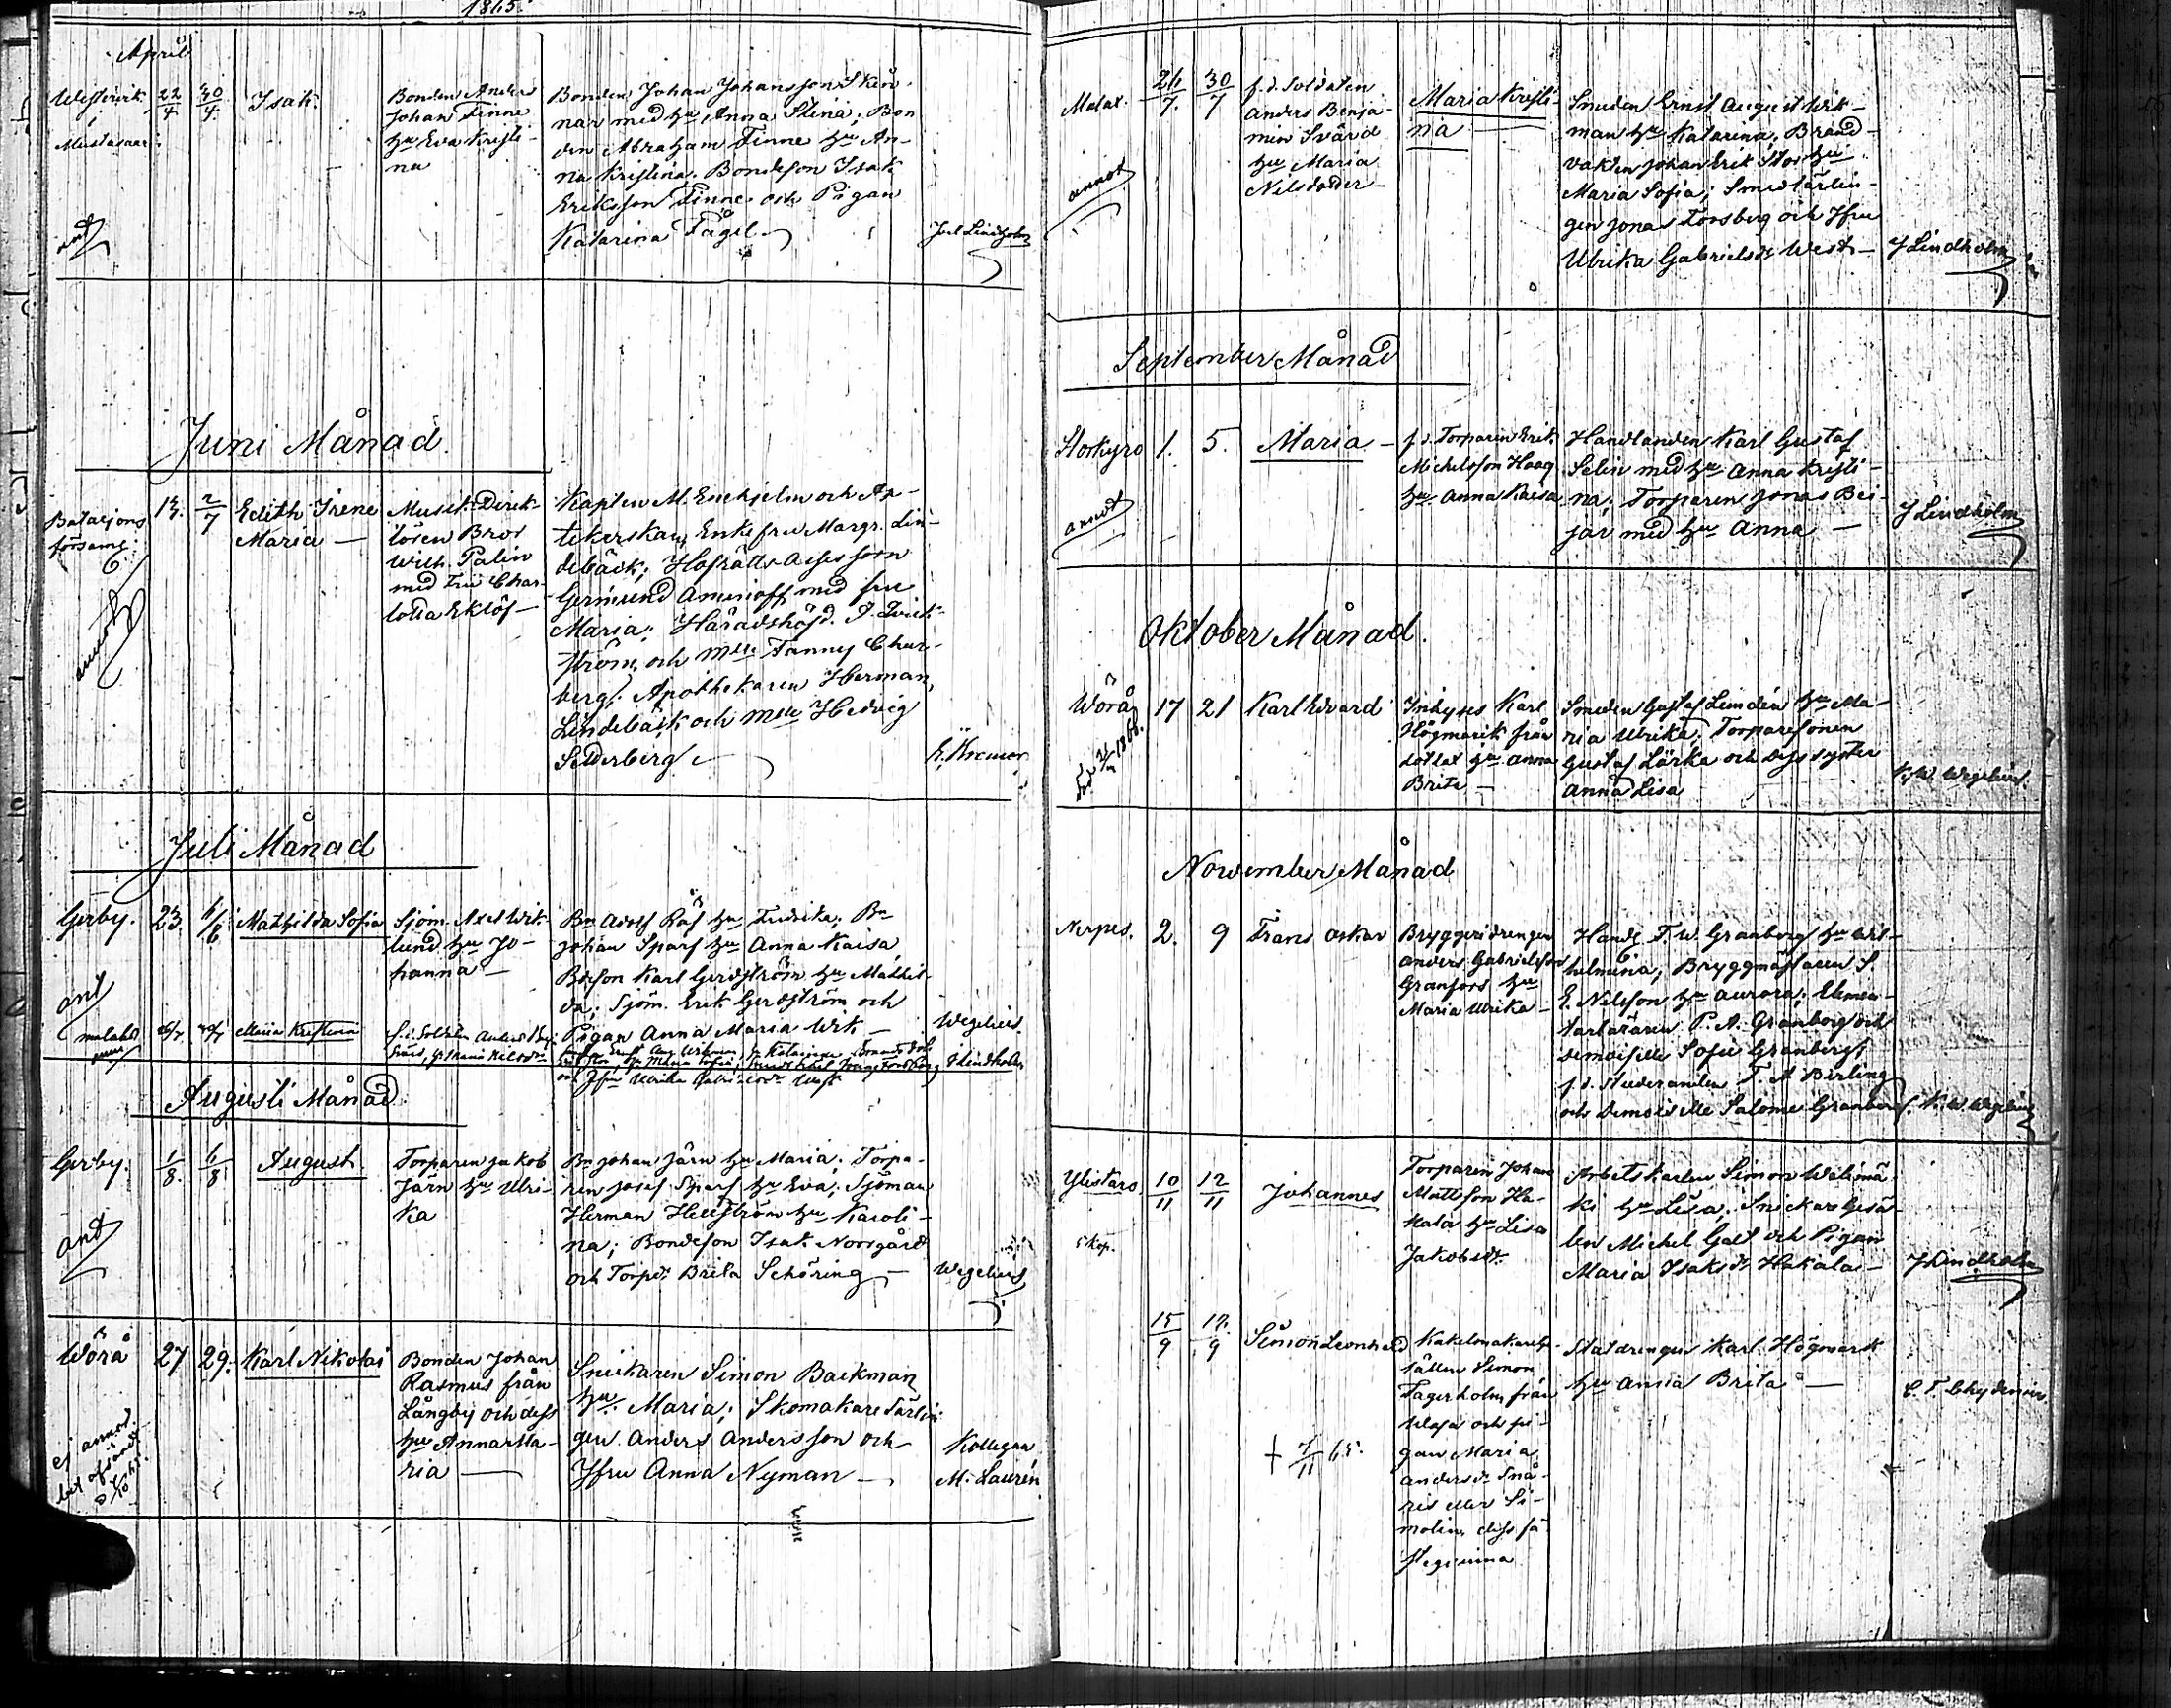 1865.
April
Westervik
Mustasaari
22/4
30/4
Isak.
Bonden Anders
Johan Finne
hu Eva Kristi-
na
Bonden Johan Johansson Skin-
nar med hu Anna Stina; Bon
den Abraham Finne hu An-
na Kristina. Bondeson Isak
Eriksson Finne och Pigan
Katarina Fågel
Jul Lindholm
ant
Juni Månad.
Bataljons
församl:
13.
2/7
Edith Irene
Maria
Musik-Direk-
tören Bror
Wilh. Palin
med Fru Char-
lotta Eklöf
Kapten M. Enehjelm och Ap-
tekerskan, Enkefru Margr. Lin-
debäck; Hofrätts-Assessorn
Germund Aminoff med fru
Maria; Häradshöfd. J.
ström och Mlle Fanny Chur-
berg; Apothekaren Herman
Lindebäck och Mlle Hedvig
Sederberg
annot
Juli Månad
Gerby.
23.
6/8
Mathilda Sofia
Sjöm. Axel Wik-
lund hu Jo-
hanna
Bn Adolf Räf hu Fredrika; Bn
Johan Sparf hu Anna Kaisa,
Bdeson Karl Gerdström hu Mathil-
da; Sjöm. Erik Gerdström och
Pigan Anna Maria Wik
Wegelius
ant
malaks
26/7
30/7
Maria Kristina
f.d. Soldaten Anders Benj.
Svärd, hu Maria Nilsdr
Smeden Ernst Aug Wikman, hu Katarina
Maria Sofia; Jonas Forsberg
och Jfru Ulrika Gabrielsdr West
J Lindholm
Augusti Månad
Gerby.
1/8
6/8
August
Torparen Jakob
Järn hu Ulri-
ka
Bn Johan Järn hu Maria; Torpa-
ren Josef Sparf hu Eva; Sjöman
Herman Hellström hu Karoli-
na; Bondeson Isak Norrgård
och Torpdr Brita Schöring
Wegelius
ant
Wörå
27
29.
Karl Nikolai
Bonden Johan
Rasmus från
Långby och dess
hu Anna Ma-
ria
Snickaren Simon Backman
hu Maria; Skomakare Lärlin-
gen Anders Andersson och
Jfru Anna Nyman
Kollegan
M. Laurén
ej annot.
Malax.
26/7.
30/7
f.d. Soldaten
Anders Benja-
min Svärd
hu Maria
Nilsdotter
Maria Kristi-
na
Smeden Ernst August Wik-
man hu Katarina; Brand-
vakten Johan Erik Stor hu
Maria Sofia; Smedlärlin-
gen Jonas Forsberg och Jfru
Ulrika Gabrielsdr West
J Lindholm
annot
September Månad
Storkyro
1.
5.
Maria
f.d. Torparen Erik
Michelsson Haag
hu Anna Kaisa
Handlanden Karl Gustaf
Selin med hu Anna Kristi-
na; Torparen Jonas Bei-
jar med hu Anna
J Lindholm
annot
Oktober Månad.
Wörå
17
21
Karl Edvard
Inhyses Karl
Högmark från
hu Anna
Brita
Smeden Gustaf Lundén hu Ma-
ria Ulrika; Torparesonen
Gustaf Lärka och dess syster
Anna Lisa
K.W. Wegelius.
November Månad
Nerpes.
2.
9
Frans Oskar
Bryggeridrengen
Anders Gabrielsson
Granfors hu
Maria Ulrika
Handl. F. W. Granberg hu Wil-
helmina; Bryggmästaren S.
E. Nilsson hu Aurora; Elemen-
tarläraren P. A. Granberg och
demoiselle Sofie Granberg;
f.d. Studeranden F. A Berling
och Demoiselle Salome Granberg.
K. W Wegelius
Ylistaro
10/11
12/11
Johannes
Torparen Johan
Mattsson Ha-
kala hu Lisa
Jakobsdr.
Arbetskarlen Simon Walimä-
ki hu Lisa; Snickar Gesäl-
len Michel Gast och Pigan
Maria Isaksdr Hakala
J Lindholm
5 kop.
15/9
17/9
Simon Leonhard
Kakelmakarege-
sällen Simon
Fagerholm från
Wasa och pi-
gan Maria
Andersdr Snå-
ris eller Si-
molin, dess fä-
steqvinna
Stal drengen Karl Högmark
hu Anna Brita
+ 7/11 65.